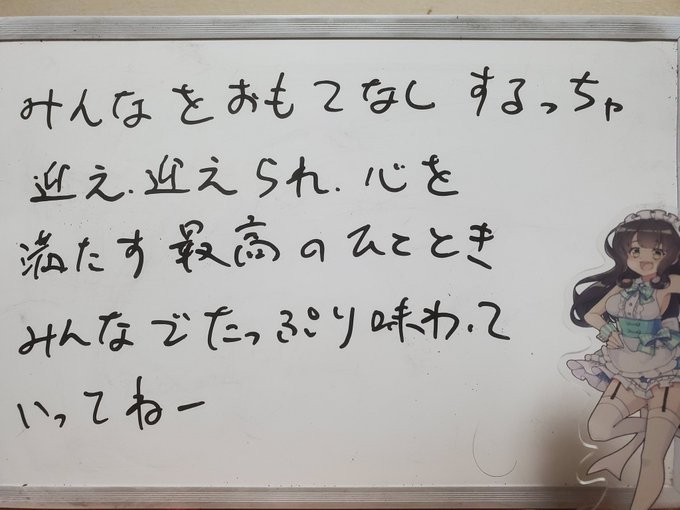 みんなをおもてなしするっちゃ
迎え、迎えられ、心を
満たす最高のひととき
みんなでたっぷり味わって
いってねー